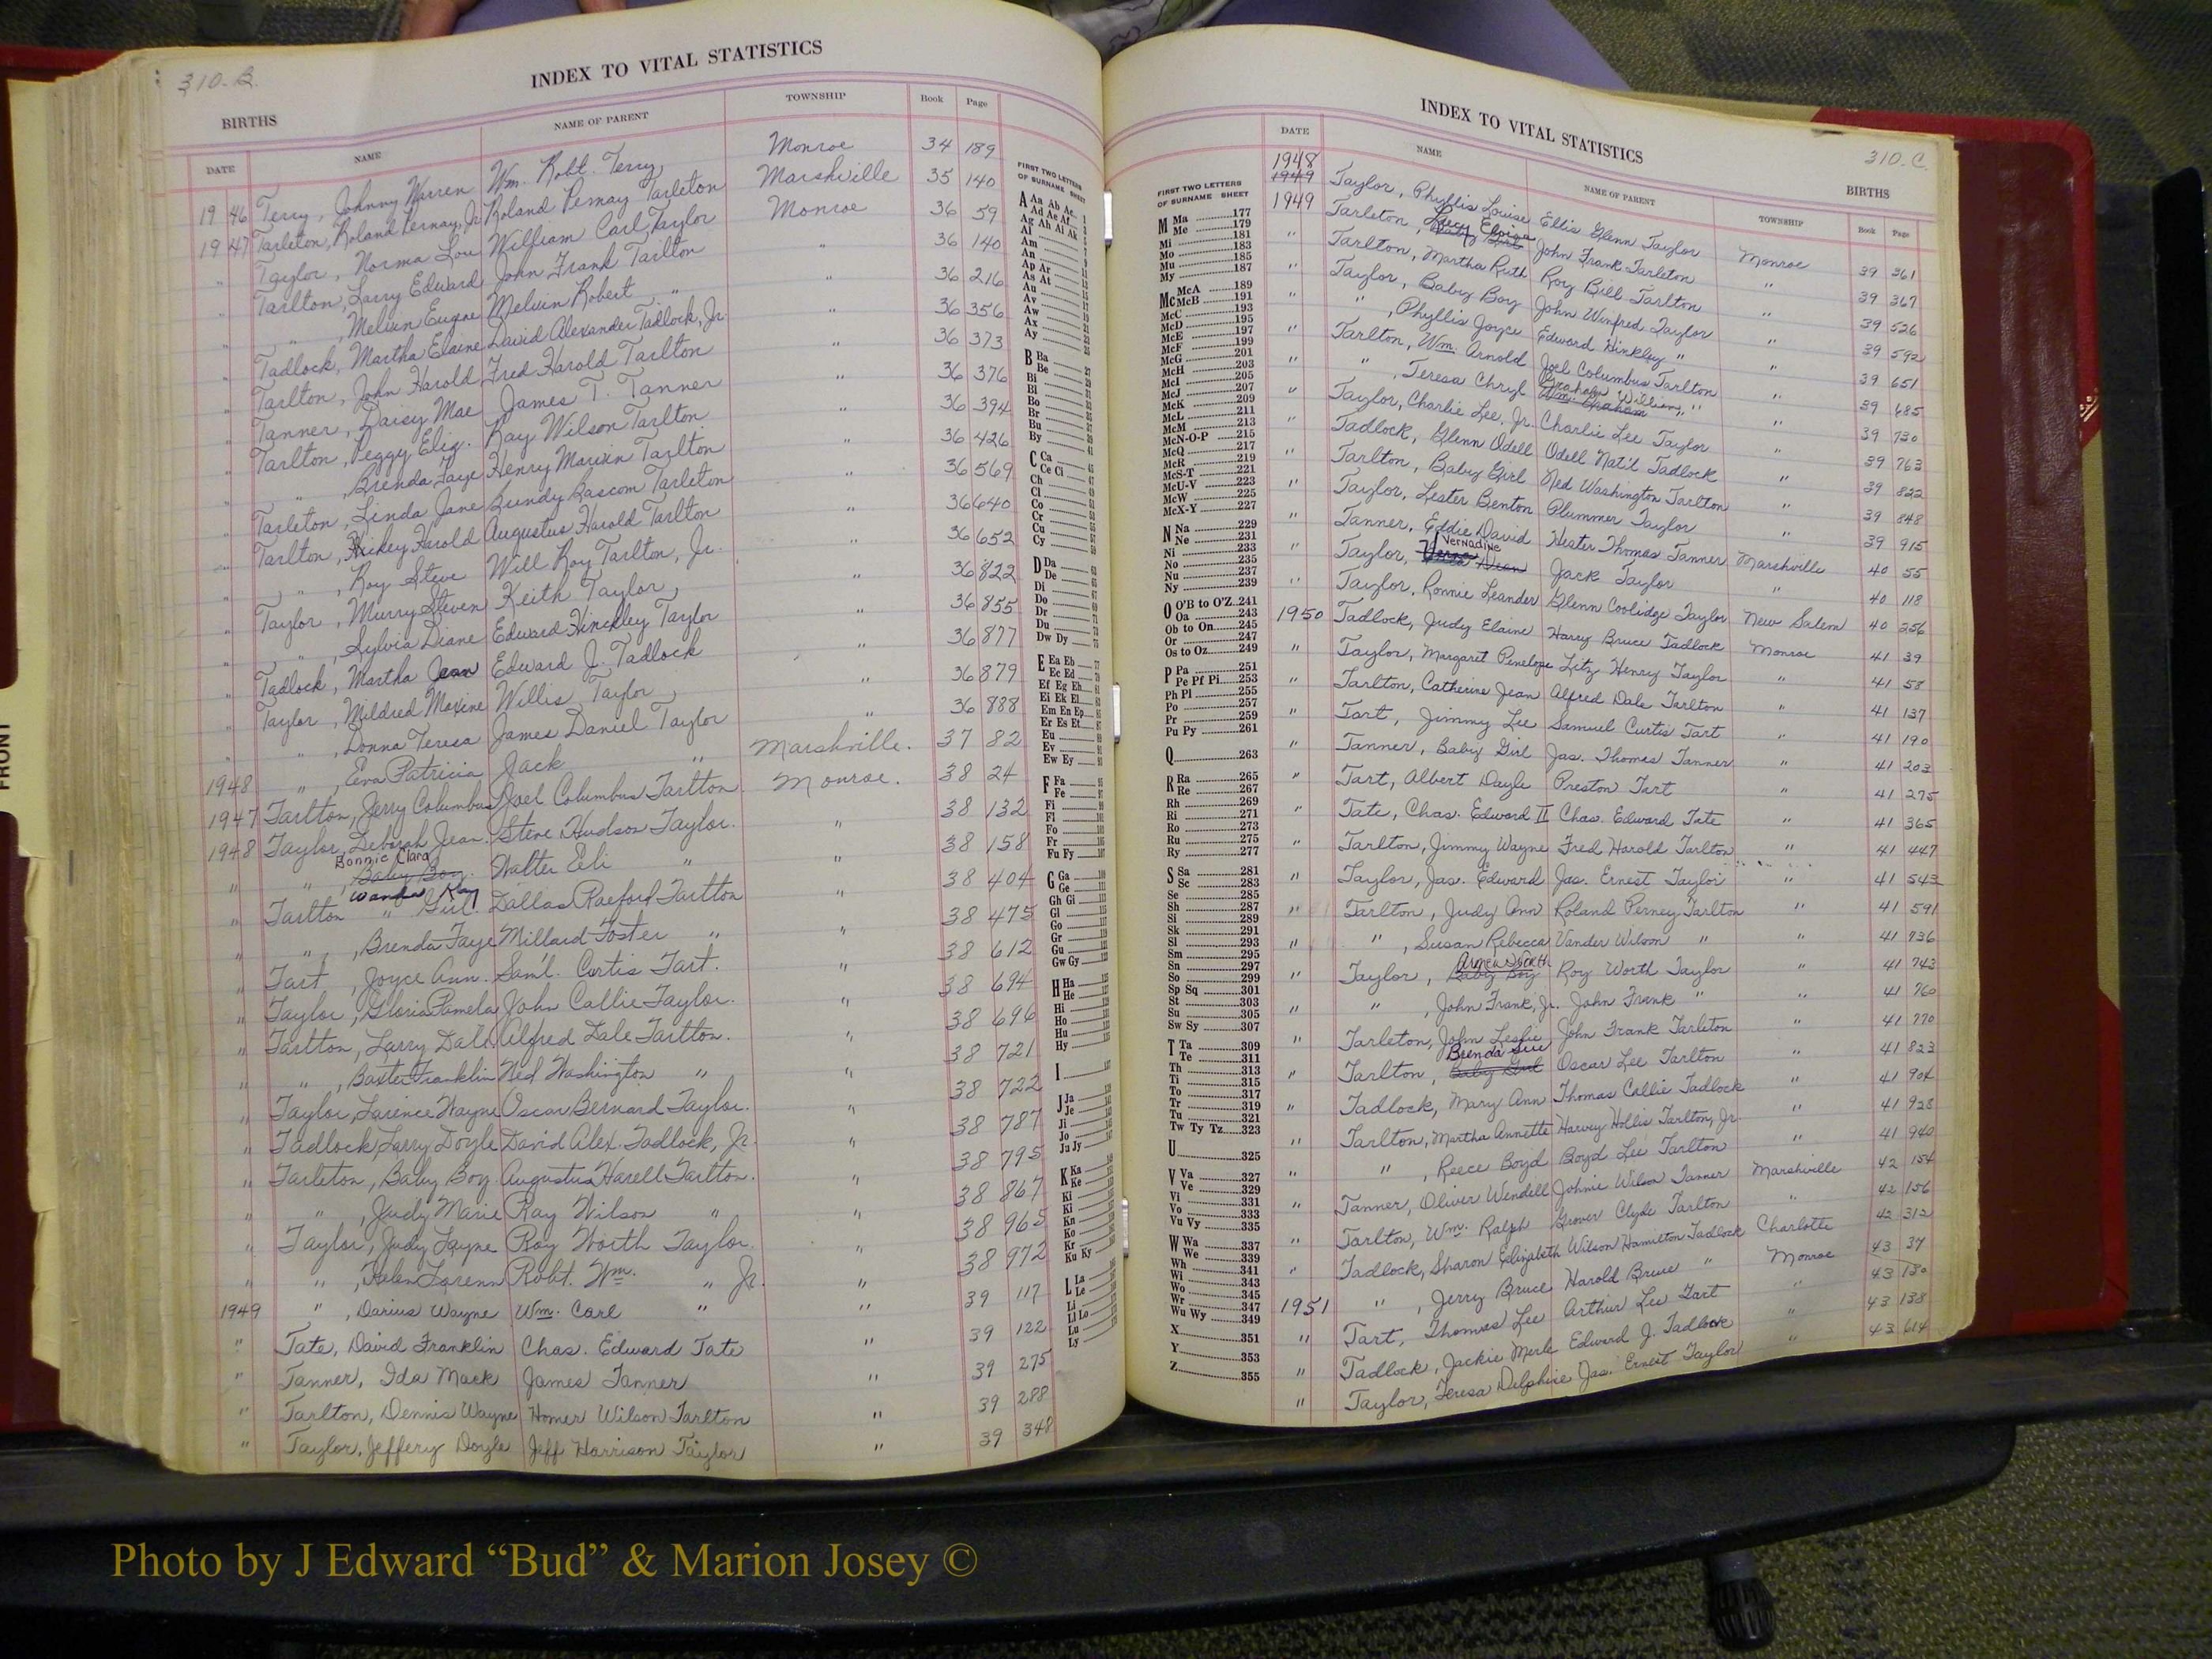 310-B.
INDEX TO VITAL STATISTICS
BIRTHS
DATE NAME NAME OF PARENT TOWNSHIP Book Page
1946 Terry, Johnny Warren Wm. Robt. Terry Monroe 34 189
1947 Tarleton, Roland Pernay, Jr. Roland Pernay Tarleton Marshville 35 140
" Taylor, Norma Lou William Carl Taylor Monroe 36 59
" Tarlton, Larry Edward John Frank Tarlton " 36 140
" " , Melvin Eugene Melvin Robert " " 36 216
" Tadlock, Martha Elaine David Alexander Tadlock, Jr. " 36 356
" Tarlton, John Harold Fred Harold Tarlton " 36 373
" Tanner, Daisy Mae James T. Tanner " 36 376
" Tarlton, Peggy Eliz. Ray Wilson Tarlton " 36 394
" " , Brenda Faye Henry Marvin Tarlton " 36 426
" Tarleton, Linda Jane Bundy Bascom Tarleton " 36 569
" Tarlton, Harold Augustus Harold Tarlton " 36 640
" " , Roy Steve Will Roy Tarlton, Jr. " 36 652
" Taylor, Murry Steven Keith Taylor " 36 822
" " , Sylvia Diane Edward Hinckley Taylor " 36 855
" Tadlock, Martha Jean Edward J. Tadlock " 36 877
" Taylor, Mildred Maxine Willis Taylor " 36 879
" " , Donna Teresa James Daniel Taylor " 36 888
1948 " , Eva Patricia Jack " Marshville. 37 82
1947 Tarlton, Jerry Columbus Joel Columbus Tarlton Monroe. 38 24
1948 Taylor, Deborah Jean. Steve Hudson Taylor. " 38 132
Bonnie Clara
" " , Baby Boy. Walter Eli " " 38 158
Wanda Kay
" Tarlton " Girl. Dallas Raeford Tarlton " 38 404
" " , Brenda Faye Millard Foster " " 38 475
" Tart, Joyce Ann. Sam'l. Curtis Tart. " 38 612
" Taylor, Gloria Pamela John Callie Taylor. " 38 694
" Tarlton, Larry Dale. Alfred Dale Tarlton. " 38 696
" " , Baxter Franklin Ned Washington " " 38 721
" Taylor, Larence Wayne Oscar Bernard Taylor. " 38 722
" Tadlock, Larry Doyle David Alex. Tadlock, Jr. " 38 787
" Tarleton, Baby Boy. Augustus Harell Tarlton. " 38 795
" " , Judy Marie Ray Wilson " " 38 867
" Taylor, Judy Layne Roy Worth Taylor. " 38 965
" " , Robt. Wm. " Jr. " 38 972
1949 " , Darius Wayne Wm. Carl " " 39 117
" Tate, David Franklin Chas. Edward Tate " 39 122
" Tanner, Ida Mack James Tanner " 39 275
" Tarlton, Dennis Wayne Homer Wilson Tarlton " 39 288
" Taylor, Jeffery Doyle Jeff Harrison Taylor " 39 348
FIRST TWO LETTERS
OF SURNAME SHEET
A Aa Ab Ac
Ad Ae Af
Ag Ah Ai Ak
Al
Am
An
Ap Ar
As At
Au
Av
Aw
Ax
Ay
B Ba
Be
Bi
Bl
Bo
Br
Bu
By
C Ca
Ce Ci
Ch
Cl
Co
Cr
Cu
Cy
D Da
De
Di
Do
Dr
Du
Dw Dy
E Ea Eb
Ec Ed
Ef Eg Eh
Ei Ek El
Em En Ep
Er Es Et
Eu
Ev
Ew Ey
F Fa
Fe
Fi
Fl
Fo
Fr
Fu Fy
G Ga
Ge
Gh Gi
Gl
Go
Gr
Gu
Gw Gy
H Ha
He
Hi
Ho
Hu
Hy
I
J Ja
Je
Ji
Jo
Ju Jy
K Ka
Ke
Ki
Kl
Kn
Ko
Kr
Ku Ky
L La
Le
Li
Ll Lo
Lu
Ly
INDEX TO VITAL STATISTICS
310-C.
BIRTHS
DATE NAME NAME OF PARENT TOWNSHIP Book Page
FIRST TWO LETTERS
OF SURNAME SHEET
M Ma 177
Me 179
Mi 181
Mo 183
Mu 185
My 187
Mc McA 189
McB 191
McC 193
McD 195
McE 197
McF 199
McG 201
McH 203
McI 205
McJ 207
McK 209
McL 211
McM 213
McN-O-P 215
McQ 217
McR 219
McS-T 221
McU-V 223
McW 225
McX-Y 227
N Na 229
Ne 231
Ni 233
No 235
Nu 237
Ny 239
O O'B to O'Z 241
Oa 243
Ob to On 245
Or 247
Os to Oz 249
P Pa 251
Pe Pf Pi 253
Ph Pl 255
Po 257
Pr 259
Pu Py 261
Q 263
R Ra 265
Re 267
Rh 269
Ri 271
Ro 273
Ru 275
Ry 277
S Sa 281
Sc 283
Se 285
Sh 287
Si 289
Sk 291
Sl 293
Sm 295
Sn 297
So 299
Sp Sq 301
St 303
Su 305
Sw Sy 307
T Ta 309
Te 311
Th 313
Ti 315
To 317
Tr 319
Tu 321
Tw Ty Tz 323
U 325
V Va 327
Ve 329
Vi 331
Vo 333
Vu Vy 335
W Wa 337
We 339
Wh 341
Wi 343
Wo 345
Wr 347
Wu Wy 349
X 351
Y 353
Z 355
1948
1949 Taylor, Phyllis Louise Ellis Glenn Taylor Monroe 39 361
1949 Tarleton, Lucy Eloise Baby Girl John Frank Tarleton " 39 367
" Tarlton, Martha Ruth Roy Bill Tarlton " 39 526
" Taylor, Baby Boy John Winfred Taylor " 39 592
" " , Phyllis Joyce Edward Hinkley " " 39 651
" Tarlton, Wm. Arnold Joel Columbus Tarlton " 39 685
" " , Teresa Chryl Graham William " Wm. Graham " 39 730
" Taylor, Charlie Lee, Jr. Charlie Lee Taylor " 39 763
" Tadlock, Glenn Odell Odell Nat'l Tadlock " 39 822
" Tarlton, Baby Girl Ned Washington Tarlton " 39 848
" Taylor, Lester Benton Plummer Taylor " 39 915
" Tanner, Eddie David Hester Thomas Tanner Marshville 40 55
Vernadine
" Taylor, Jack Taylor " 40 118
" Taylor, Ronnie Leander Glenn Coolidge Taylor New Salem 40 256
1950 Tadlock, Judy Elaine Harry Bruce Tadlock Monroe 41 39
" Taylor, Margaret Penelope Litz Henry Taylor " 41 58
" Tarlton, Catherine Jean Alfred Dale Tarlton " 41 137
" Tart, Jimmy Lee Samuel Curtis Tart " 41 190
" Tanner, Baby Girl Jas. Thomas Tanner " 41 203
" Tart, Albert Dayle Preston Tart " 41 275
" Tate, Chas. Edward II Chas. Edward Tate " 41 365
" Tarlton, Jimmy Wayne Fred Harold Tarlton " 41 447
" Taylor, Jas. Edward Jas. Ernest Taylor " 41 543
" Tarlton, Judy Ann Roland Perney Tarlton " 41 591
" " , Susan Rebecca Vander Wilson " " 41 736
" Taylor, Baby Boy Roy Worth Taylor " 41 743
" " , John Frank, Jr. John Frank " " 41 760
" Tarleton, John Leslie John Frank Tarleton " 41 770
Brenda Sue
" Tarlton, Baby Girl Oscar Lee Tarlton " 41 823
" Tadlock, Mary Ann Thomas Collie Tadlock " 41 904
" Tarlton, Martha Annette Harvey Hollis Tarlton, Jr. " 41 928
" " , Reece Boyd Boyd Lee Tarlton " 41 940
" Tanner, Oliver Wendell Johnie Wilson Tanner Marshville 42 154
" Tarlton, Wm. Ralph Grover Clyde Tarlton " 42 156
" Tadlock, Sharon Elizabeth Wilson Hamilton Tadlock Charlotte 42 312
1951 " , Jerry Bruce Harold Bruce " Monroe 43 37
" Tart, Thomas Lee Arthur Lee Tart " 43 130
" Tadlock, Jackie Merle Edward J. Tadlock " 43 138
" Taylor, Teresa Delphine Jas. Ernest Taylor " 43 614
FRONT
Photo by J Edward “Bud” & Marion Josey ©